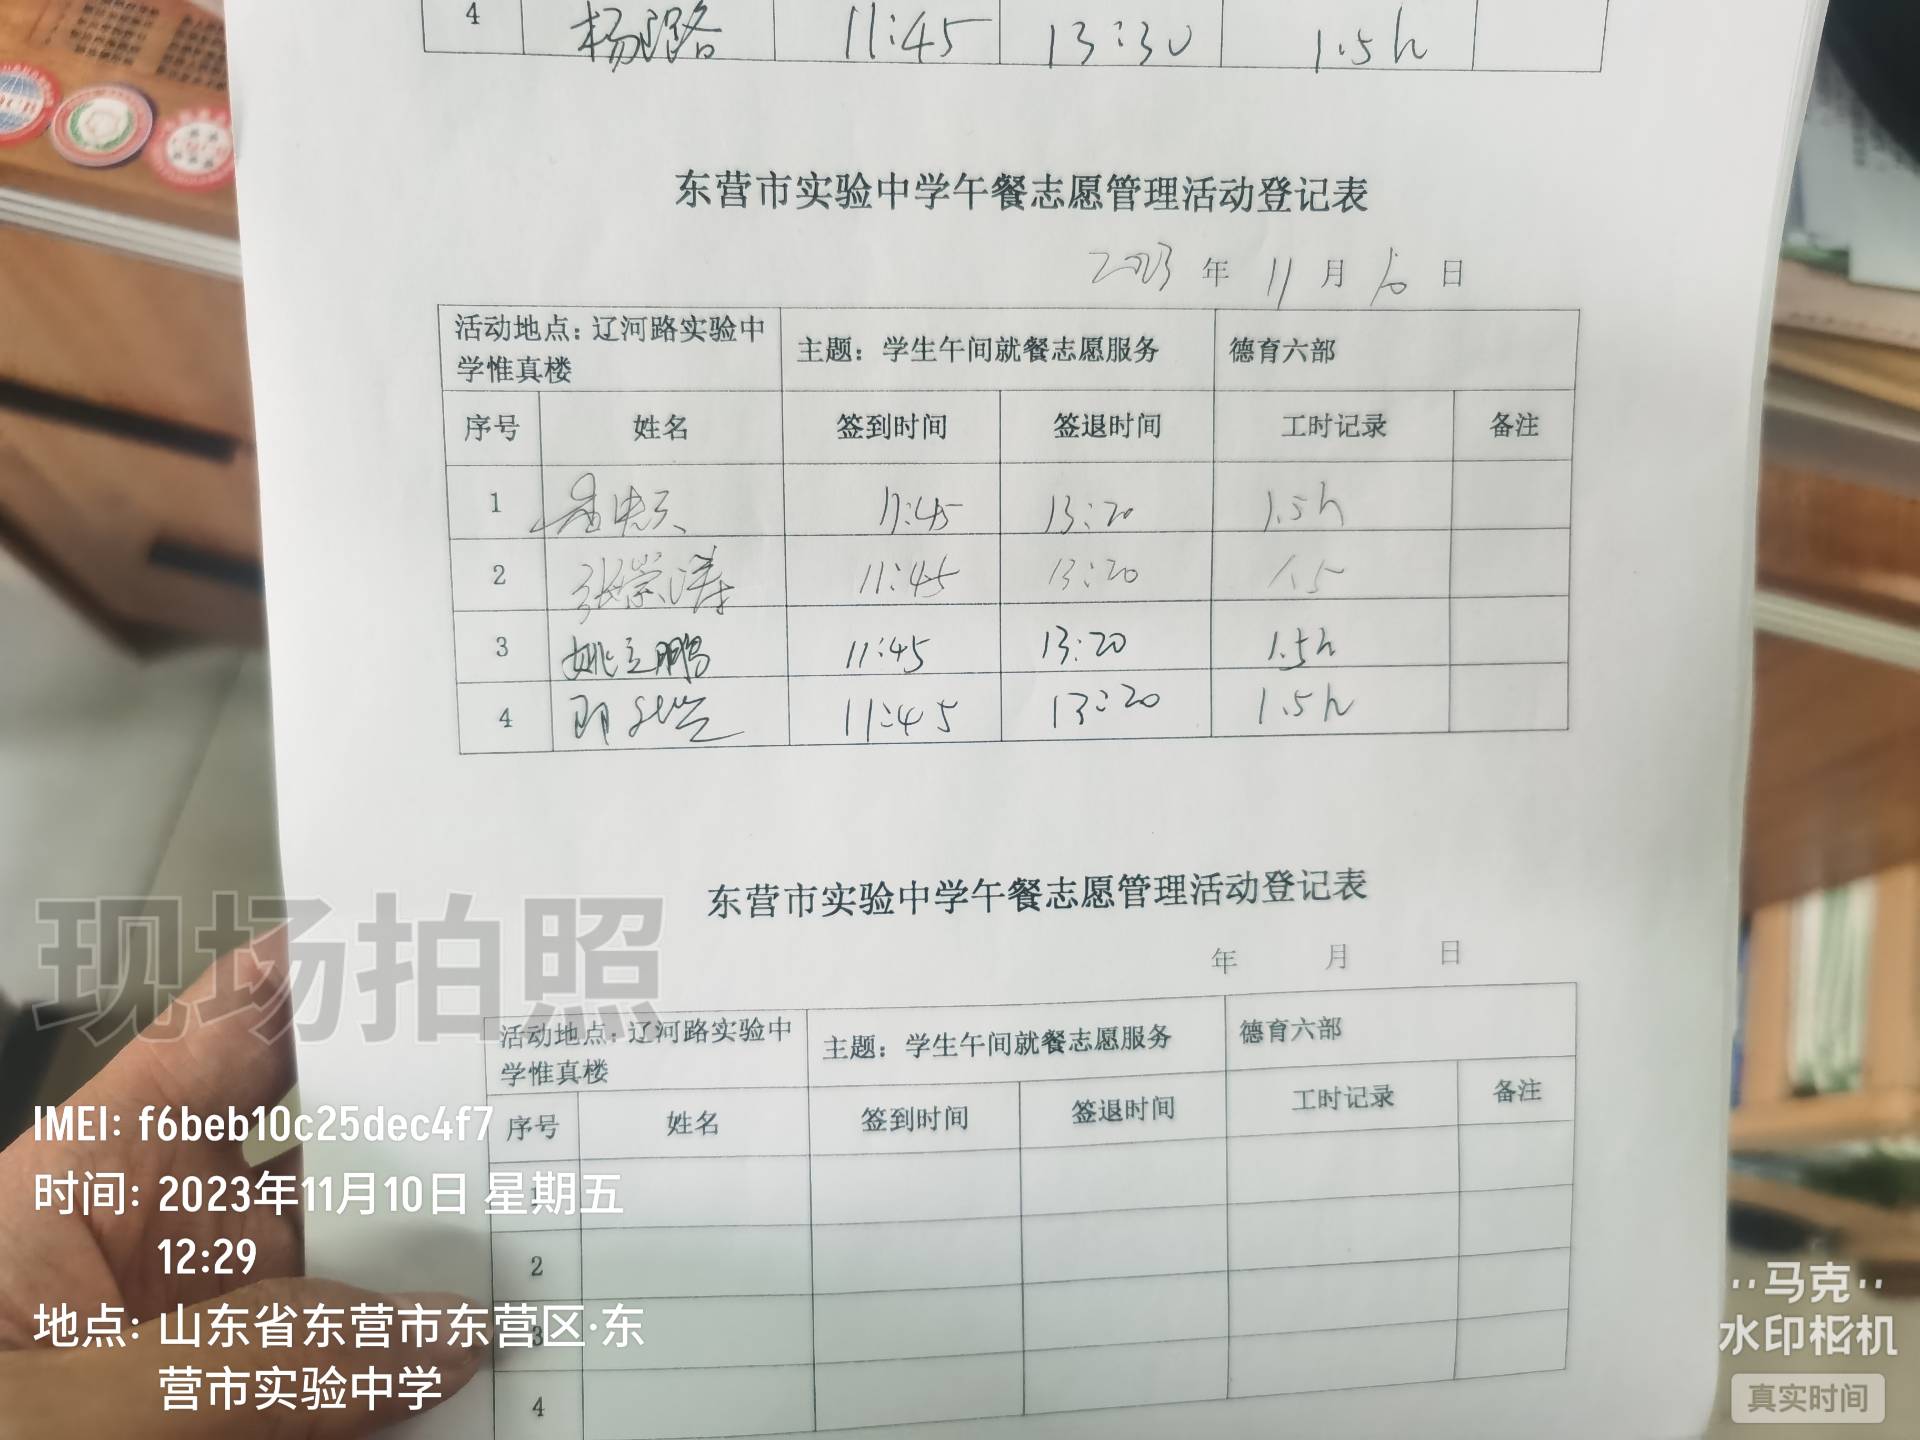 4 杨璐 11:45 13:30 1.5h
东营市实验中学午餐志愿管理活动登记表
2023 年 11 月 10 日
活动地点：辽河路实验中
学惟真楼
主题：学生午间就餐志愿服务
德育六部
序号 姓名 签到时间 签退时间 工时记录 备注
1 11:45 13:20 1.5h
2 张崇涛 11:45 13:20 1.5
3 姚立鹏 11:45 13:20 1.5h
4 11:45 13:20 1.5h
东营市实验中学午餐志愿管理活动登记表
年 月 日
活动地点：辽河路实验中
学惟真楼
主题：学生午间就餐志愿服务
德育六部
序号 姓名 签到时间 签退时间 工时记录 备注
1
2
3
4
现场拍照
IMEI: f6beb10c25dec4f7
时间: 2023年11月10日 星期五
12:29
地点: 山东省东营市东营区·东
营市实验中学
马克
水印相机
真实时间